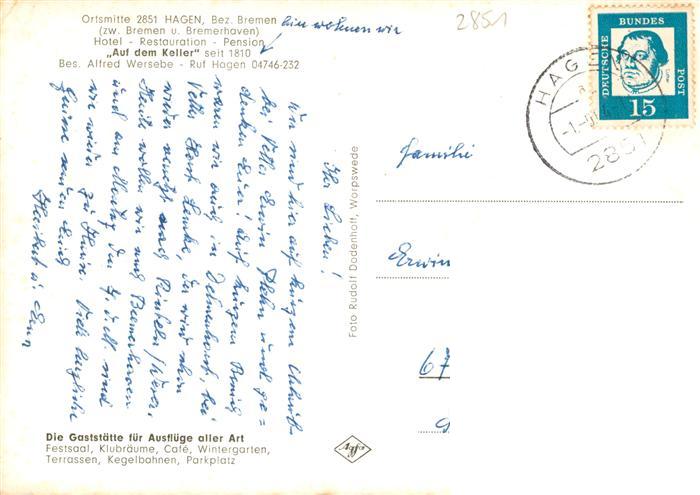 Ortsmitte 2851 HAGEN, Bez. Bremen
(zw. Bremen u. Bremerhaven)
Hotel - Restauration - Pension
„Auf dem Keller" seit 1810
Bes. Alfred Wersebe - Ruf Hagen 04746-232
hier wohnen wir
2851
DEUTSCHE BUNDES POST
15
HAGEN
2851
Ihr Lieben!
Wir sind hier auf kurzem Urlaub
bei Vetter Erwin Plehn und ge=
denken Euer! Auf kurzem Besuch
waren wir auch in Delmenhorst, bei
Vetter Horst Lemke, der wird
nach Rinteln/Weser.
Heute wollen wir nach Bremerhaven
und am Montag den d. M. sind
wir wieder zu Hause. Viele herzliche
Grüße von Euch
Familie
Erwin
67
Foto Rudolf Dodenhoff, Worpswede
Die Gaststätte für Ausflüge aller Art
Festsaal, Klubräume, Café, Wintergarten,
Terrassen, Kegelbahnen, Parkplatz
Agfa